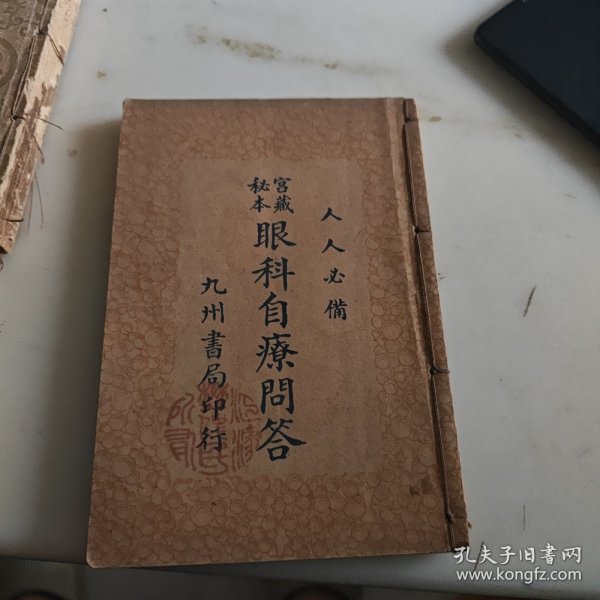 人人必備
宮藏
秘本
眼科自療問答
九州書局印行
孔夫子旧书网
www.kongfz.com